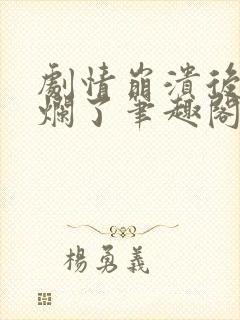 劇情崩潰後
爛了筆趣閣
楊勇義